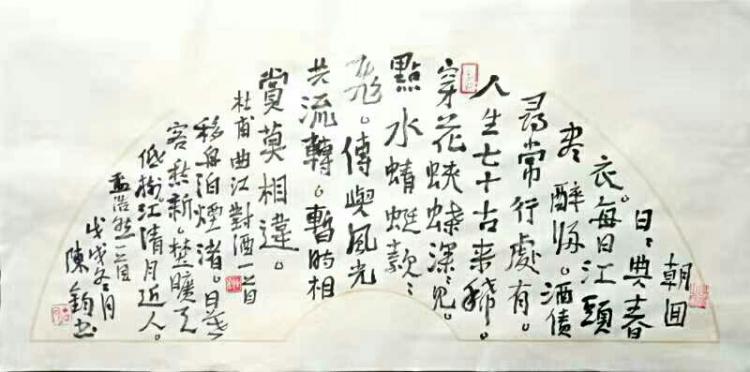 朝回
日、典春
衣。每日江頭
尽醉歸。酒債
尋常行處有。
人生七十古來稀。
穿花蛺蝶深、見。
點水蜻蜓款、
飛。傳與風光
共流轉。暫时相
賞莫相違。
杜甫曲江對酒一首
移舟泊煙渚。日暮
客愁新。埜曠天
低樹。江清月近人。
孟浩然一首
戊戌冬月
陳書